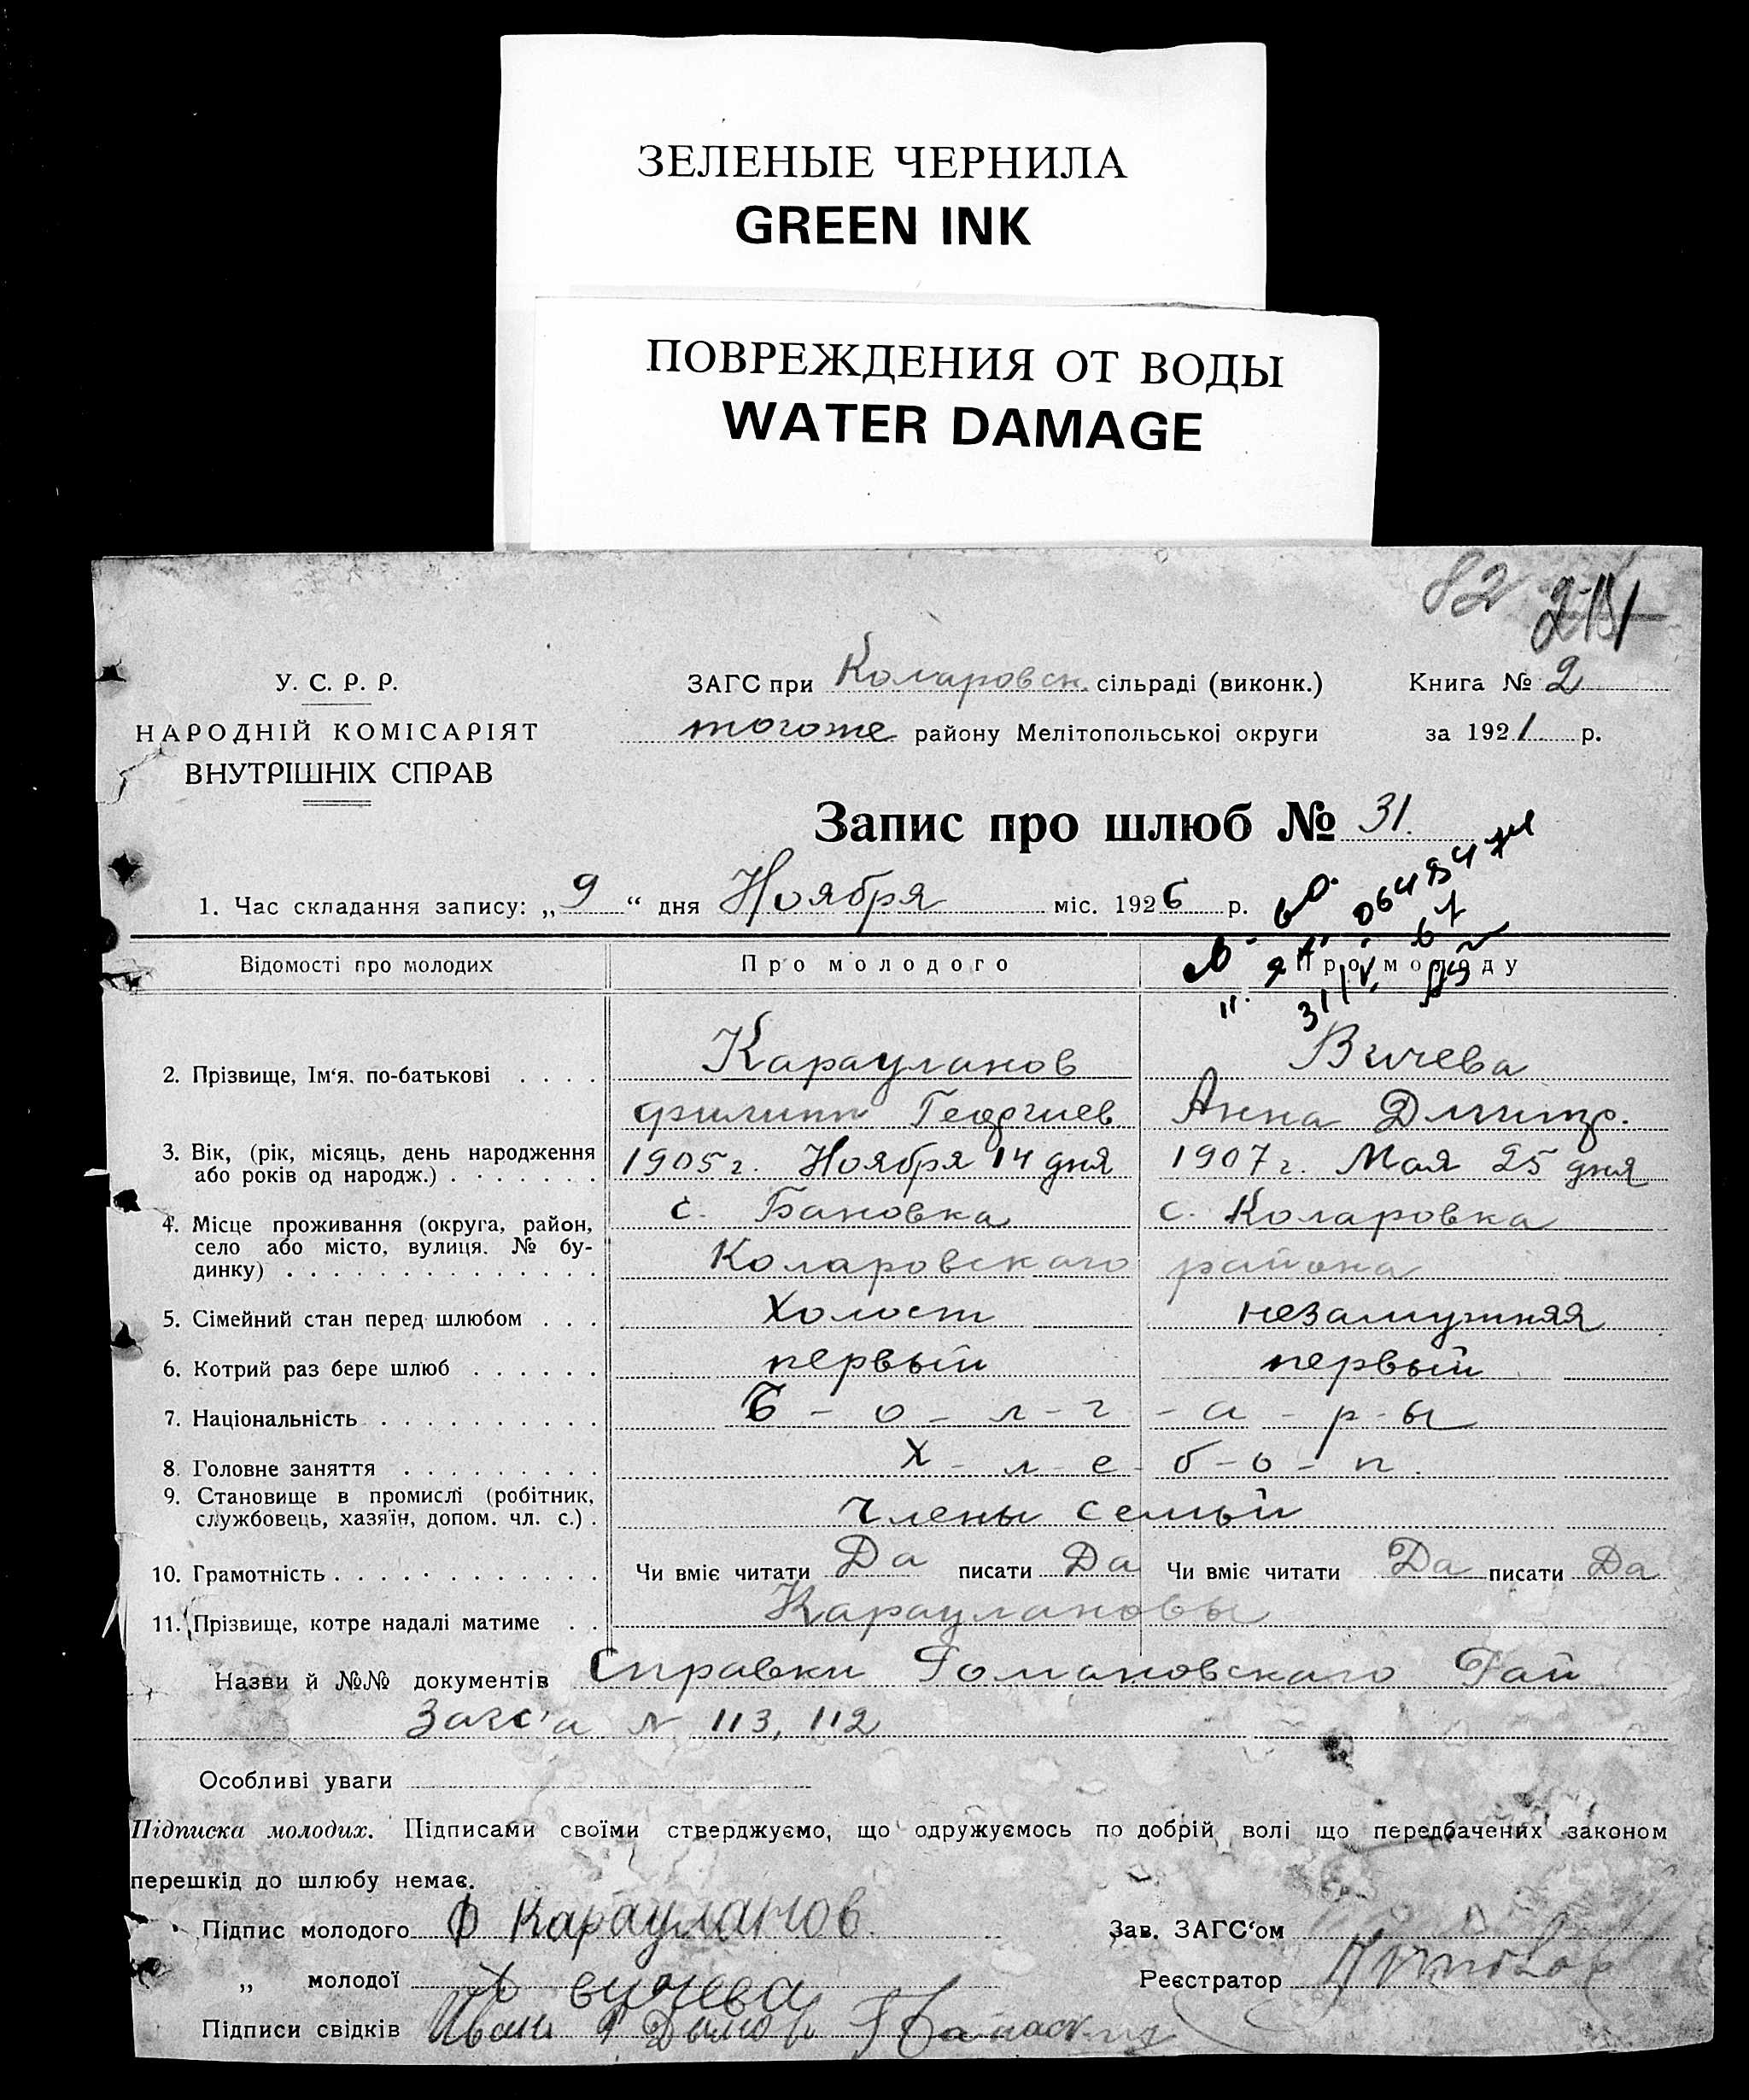 ЗЕЛЕНЫЕ ЧЕРНИЛА
GREEN INK
ПОВРЕЖДЕНИЯ ОТ ВОДЫ
WATER DAMAGE
82
У. С. Р. Р.
НАРОДНІЙ КОМІСАРІЯТ
ВНУТРІШНІХ СПРАВ
ЗАГС при Коларовск. сільраді (виконк.)
тогоже району Мелітопольської округи
Книга № 2
за 1921 р.
Запис про шлюб № 31.
1. Час складання запису: „9“ дня Ноября міс. 1926 р.
Відомості про молодих Про молодого Про молоду
2. Прізвище, Ім'я, по-батькові . . . . Карауланов Вичева
Филипп Георгиев Анна Дмитр.
3. Вік, (рік, місяць, день народження або років од народж.) . . . . . . . 1905 г. Ноября 14 дня 1907 г. Мая 25 дня
4. Місце проживання (округа, район, село або місто, вулиця, № будинку) . . . . . . . . . . . . . с. Бановка с. Коларовка
Коларовскаго района
5. Сімейний стан перед шлюбом . . . Холост незамужняя
6. Котрий раз бере шлюб . . . . . . первый первый
7. Національність . . . . . . . . . . Б - о - л - г - а - р - ы
8. Головне заняття . . . . . . . . . Х - л - е - б - о - п.
9. Становище в промислі (робітник, службовець, хазяїн, допом. чл. с.) . Члены семьи
10. Грамотність . . . . . . . . . . . . Чи вміє читати Да писати Да Чи вміє читати Да писати Да
11. Прізвище, котре надалі матиме . . Карауланова
Назви й №№ документів Справки Романовскаго Рай
Загс'а № 113, 112
Особливі уваги
Підписка молодих. Підписами своїми стверджуємо, що одружуємось по добрій волі що передбачених законом
перешкід до шлюбу немає.
Підпис молодого Ф Карауланов.
Зав. ЗАГС'ом
„ молодої вичева
Реєстратор
Підписи свідків Иван